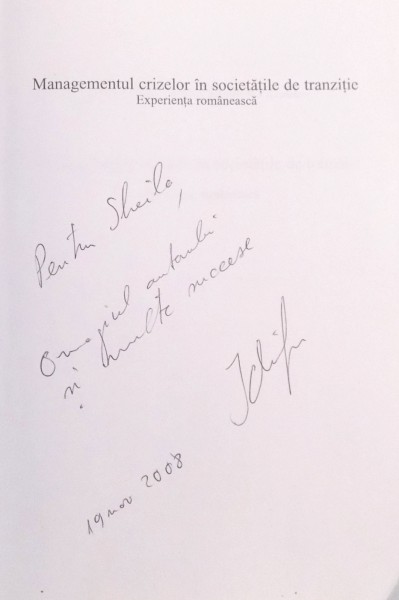 Managementul crizelor în societățile de tranziție
Experiența românească
Pentru Sheila,
Omagiul autorului
și multe succese
19 nov 2008